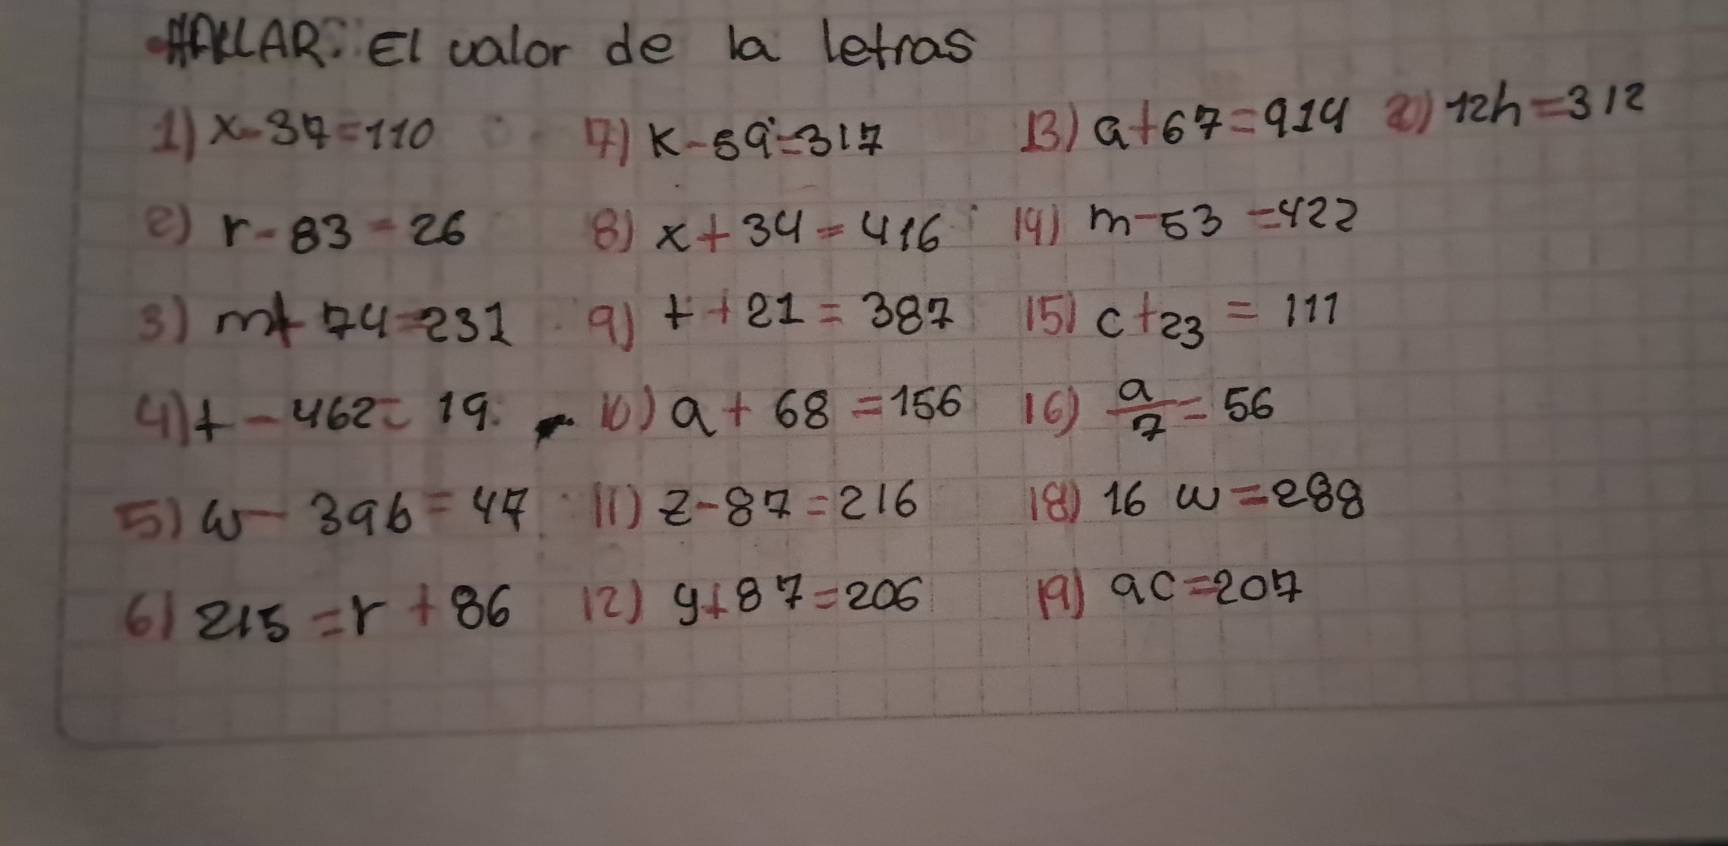 HALLAR: El valor de la letras
1) x-37=110
7) k-59=317
13) a+67=914
20) 12h=312
2) r-83=26
8) x+34=416
14) m-53=422
3) m+74=231
9) t+21=387
15) c+23=111
4) t-462=19
10) a+68=156
16) a/7=56
5) w-396=47
11) z-87=216
18) 16w=288
6) 215=r+86
12) y+87=206
19) 9c=207